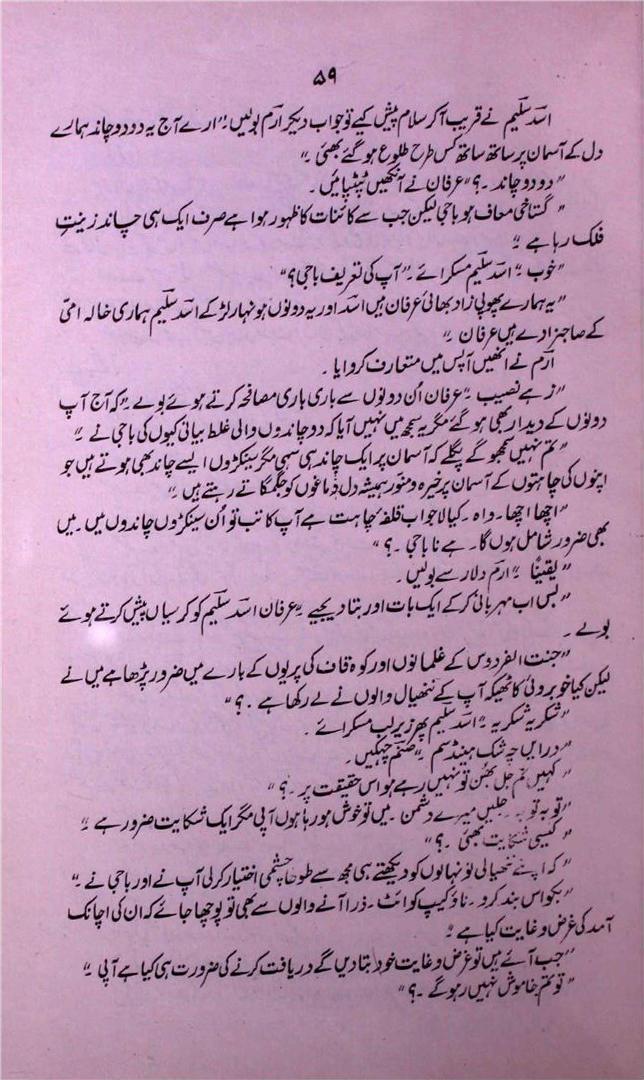 ۵۹
اسد سلیم نے قریب آکر سلام پیش کیے تو جواب دیکر ارم بولیں۔" ارے آج یہ دو دو چاند ہمارے
دل کے آسمان پر ساتھ ساتھ کس طرح طلوع ہو گئے بھئی ۔"
"دو دو چاند ۔؟" عرفان نے آنکھیں پٹپٹائیں ۔
"گستاخی معاف ہو باجی لیکن جب سے کائنات کا ظہور ہوا ہے صرف ایک ہی چاند زینتِ
فلک رہا ہے ۔"
"خوب ۔" اسد سلیم مسکرائے ۔" آپ کی تعریف باجی؟"
"یہ ہمارے پھوپی زاد بھائی عرفان ہیں اسد اور یہ دونوں ہونہار لڑکے اسد سلیم ہماری خالہ امی
کے صاحبزادے ہیں عرفان ۔"
ارم نے انھیں آپس میں متعارف کروایا ۔
"زہے نصیب ۔" عرفان اُن دونوں سے باری باری مصافحہ کرتے ہوئے بولے ۔" کہ آج آپ
دونوں کے دیدار بھی ہو گئے مگر یہ سمجھ میں نہیں آیا کہ دو چاندوں والی غلط بیانی کیوں کی باجی نے ۔"
"تم نہیں سمجھو گے پگلے کہ آسمان پر ایک چاند سہی مگر سینکڑوں ایسے چاند بھی ہوتے ہیں جو
اپنوں کی چاہتوں کے آسمان پر خیرہ و منور ہمیشہ دل دماغوں کو جگمگاتے رہتے ہیں ۔"
"اچھا اچھا ۔ واہ ۔ کیا لاجواب فلسفۂ چاہت ہے آپ کا تب تو اُن سینکڑوں چاندوں میں ۔ میں
بھی ضرور شامل ہوں گا ۔ ہے نا باجی ۔؟"
"یقیناً ۔" ارم دلار سے بولیں ۔
"بس اب مہربانی کر کے ایک بات اور بتا دیجیے ۔" عرفان اسد سلیم کو کرسیاں پیش کرتے ہوئے
بولے ۔
"جنت الفردوس کے غلمانوں اور کوہ قاف کی پریوں کے بارے میں ضرور پڑھا ہے میں نے
لیکن کیا خوبروئی کا ٹھیکہ آپ کے ننھیال والوں نے لے رکھا ہے ۔؟"
"شکریہ شکریہ ۔" اسد سلیم پھر زیر لب مسکرائے ۔
"دراں چہ شک ہینڈسم ۔" صنم چہکیں ۔
"کہیں تم جل بھن تو نہیں رہے ہو اس حقیقت پر ۔؟"
"توبہ توبہ ۔ جلیں میرے دشمن ۔ میں تو خوش ہو رہا ہوں آپی مگر ایک شکایت ضرور ہے ۔"
"کیسی شکایت بھئی ۔؟"
"کہ اپنے ننھیالی نونہالوں کو دیکھتے ہی مجھ سے طوطا چشمی اختیار کر لی آپ نے اور باجی نے ۔"
"بکواس بند کرو ۔ ناؤ کیپ کوائٹ ۔ ذرا آنے والوں سے بھی تو پوچھا جائے کہ ان کی اچانک
آمد کی غرض و غایت کیا ہے ۔"
"جب آئے ہیں تو غرض و غایت خود بتا دیں گے دریافت کرنے کی ضرورت ہی کیا ہے آپی ۔"
"تو تم خاموش نہیں رہو گے ۔؟"